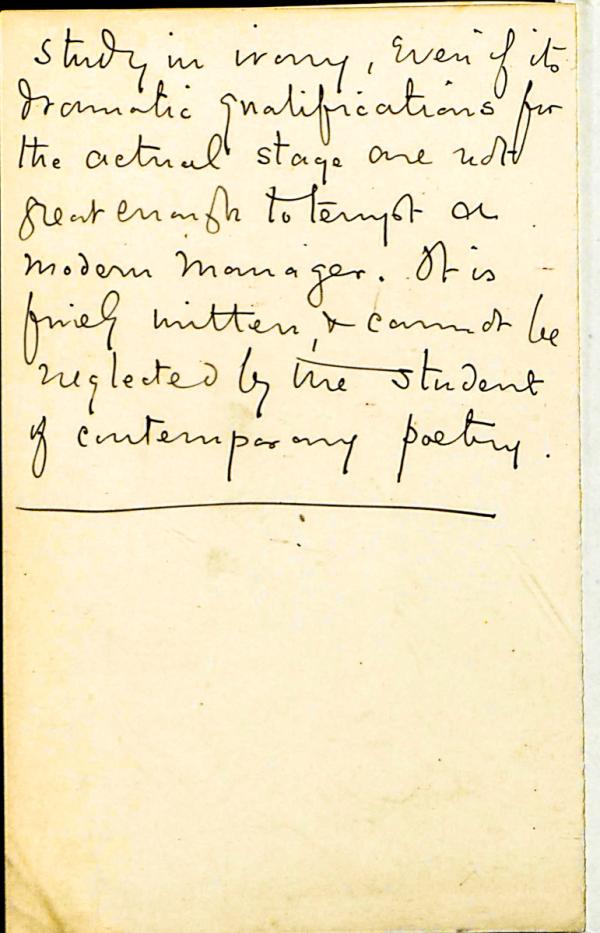 study in irony, even if its
dramatic qualifications for
the actual stage are not
great enough to tempt a
modern manager. It is
finely written, & cannot be
neglected by the student
of contemporary poetry.